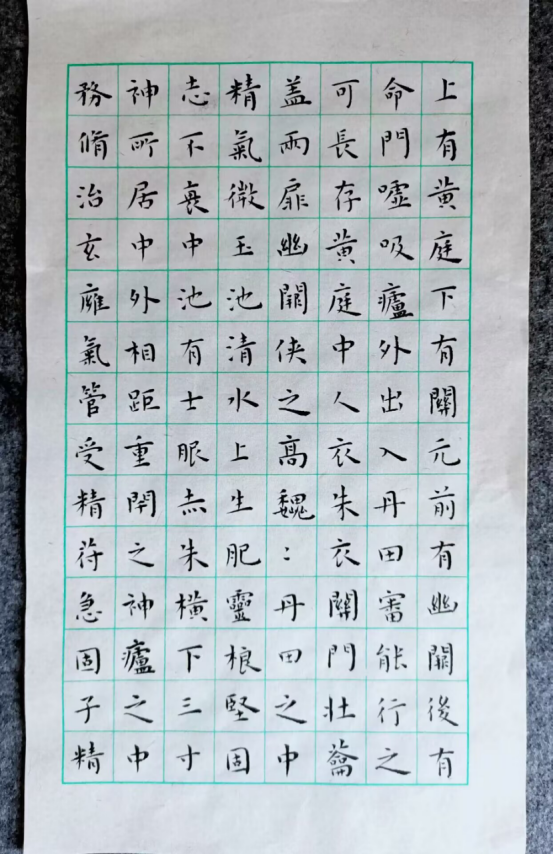 上有黃庭下有關元前有幽闕後有
命門噓吸廬外出入丹田審能行之
可長存黃庭中人衣朱衣關門壯蘥
盖兩扉幽闕俠之高魏〻丹田之中
精氣微玉池清水上生肥靈根堅固
志不衰中池有士服赤朱橫下三寸
神所居中外相距重閇之神廬之中
務脩治玄廱氣管受精苻急固子精